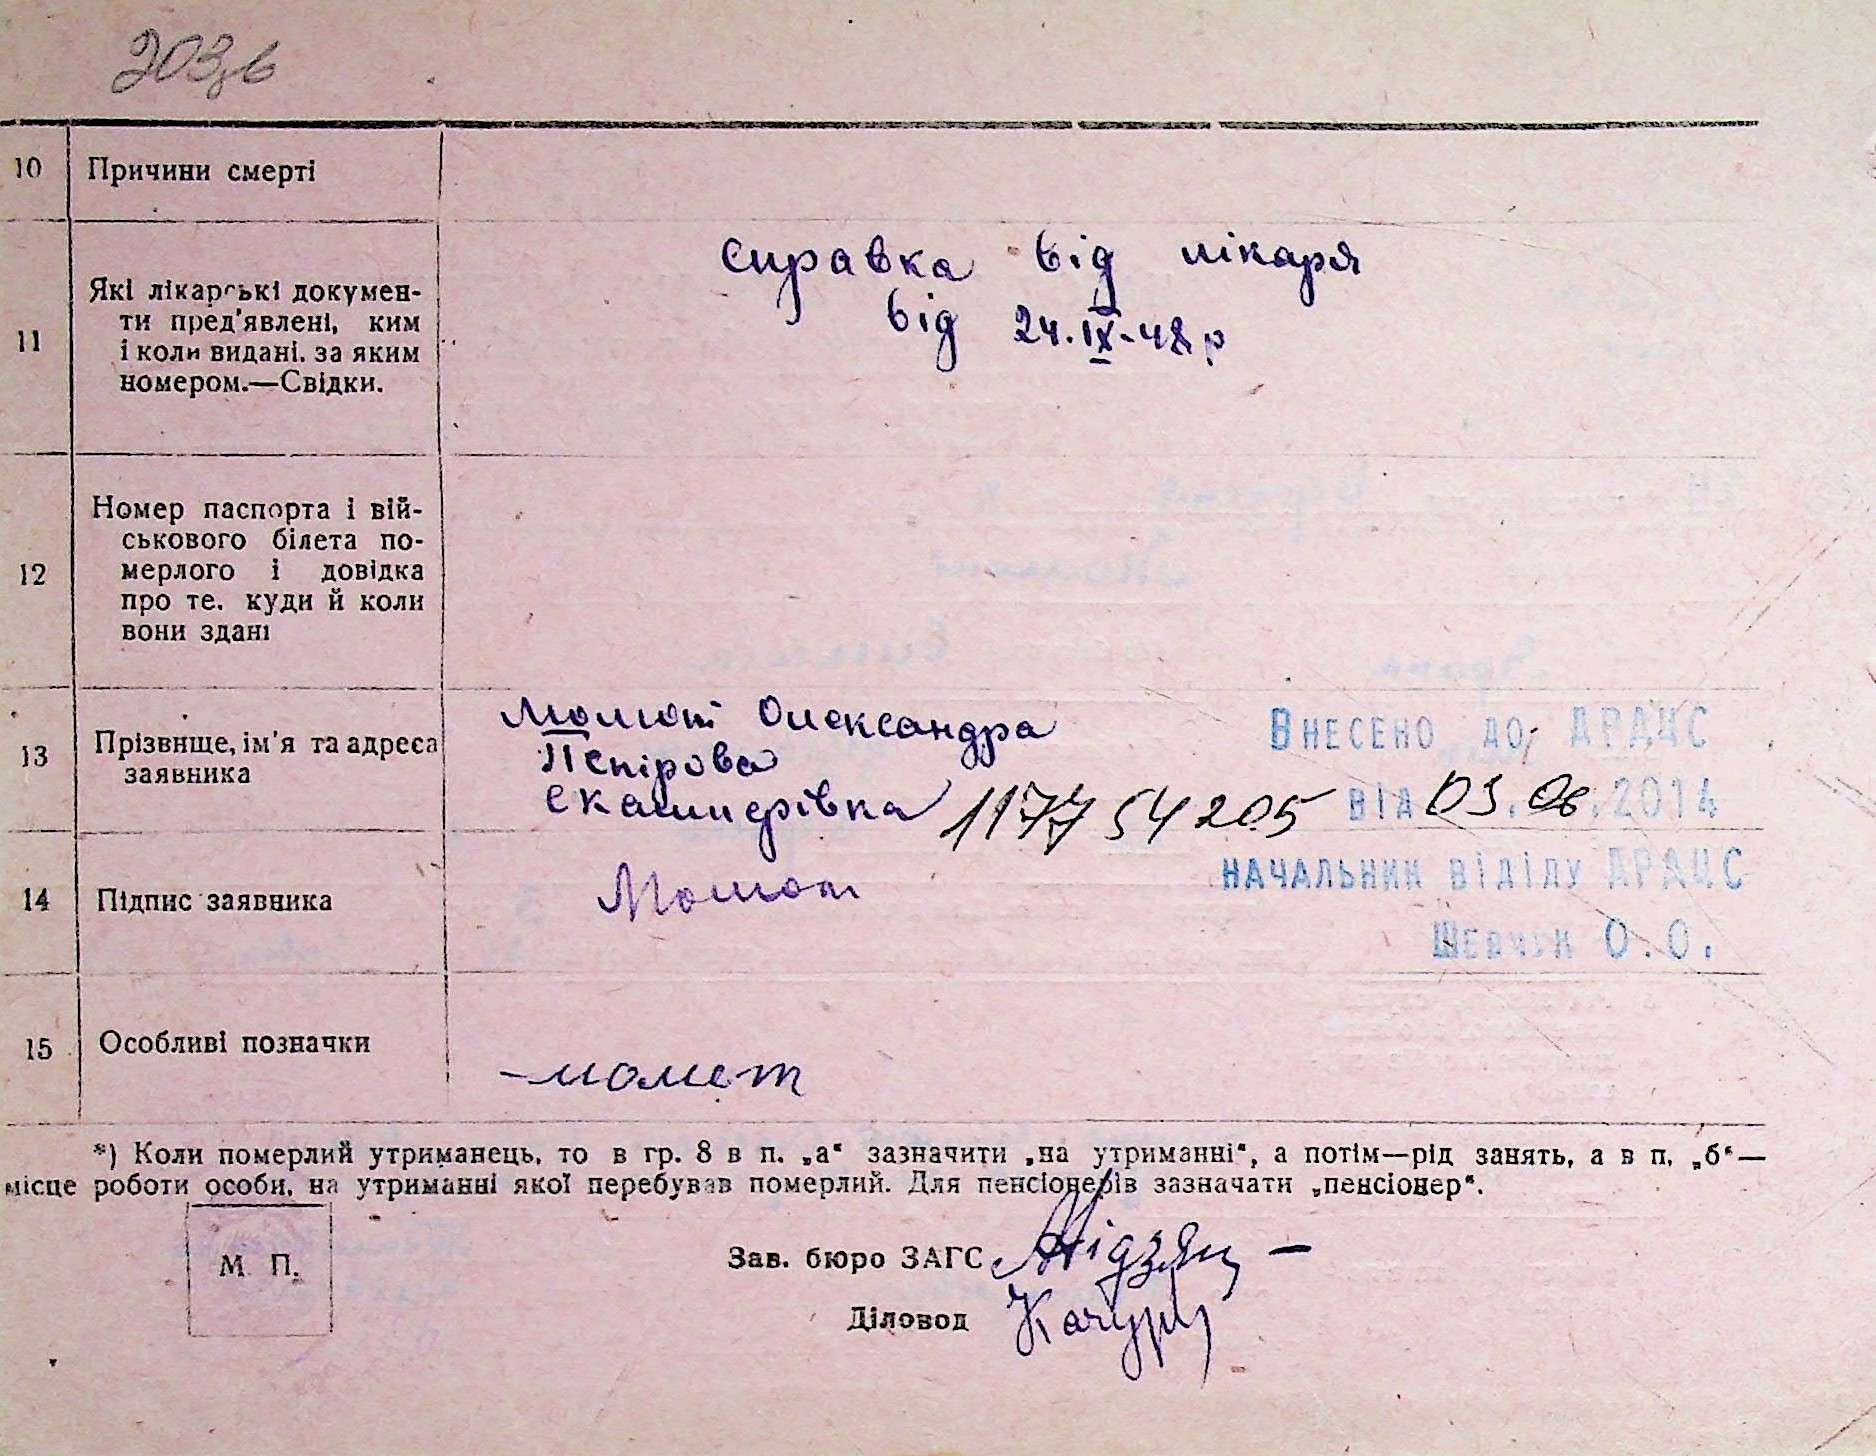 203
10 Причини смерті
11 Які лікарські докумен-
ти пред'явлені, ким
і коли видані. за яким
номером.—Свідки.
справка від лікаря
від 24.IX-48 р
12 Номер паспорта і вій-
ськового білета по-
мерлого і довідка
про те. куди й коли
вони здані
13 Прізвище, ім'я та адреса
заявника
Олександра
Петрівка 1177 54205
Внесено до ДРАЦС
від 03.06.2014
14 Підпис заявника
начальник відділу ДРАЦС
Шевчук О.О.
15 Особливі позначки
*) Коли померлий утриманець, то в гр. 8 в п. „а“ зазначити „на утриманні“, а потім—рід занять, а в п, „б“—
місце роботи особи, на утриманні якої перебував померлий. Для пенсіонерів зазначати „пенсіонер“.
М. П.
Зав. бюро ЗАГС
Діловод